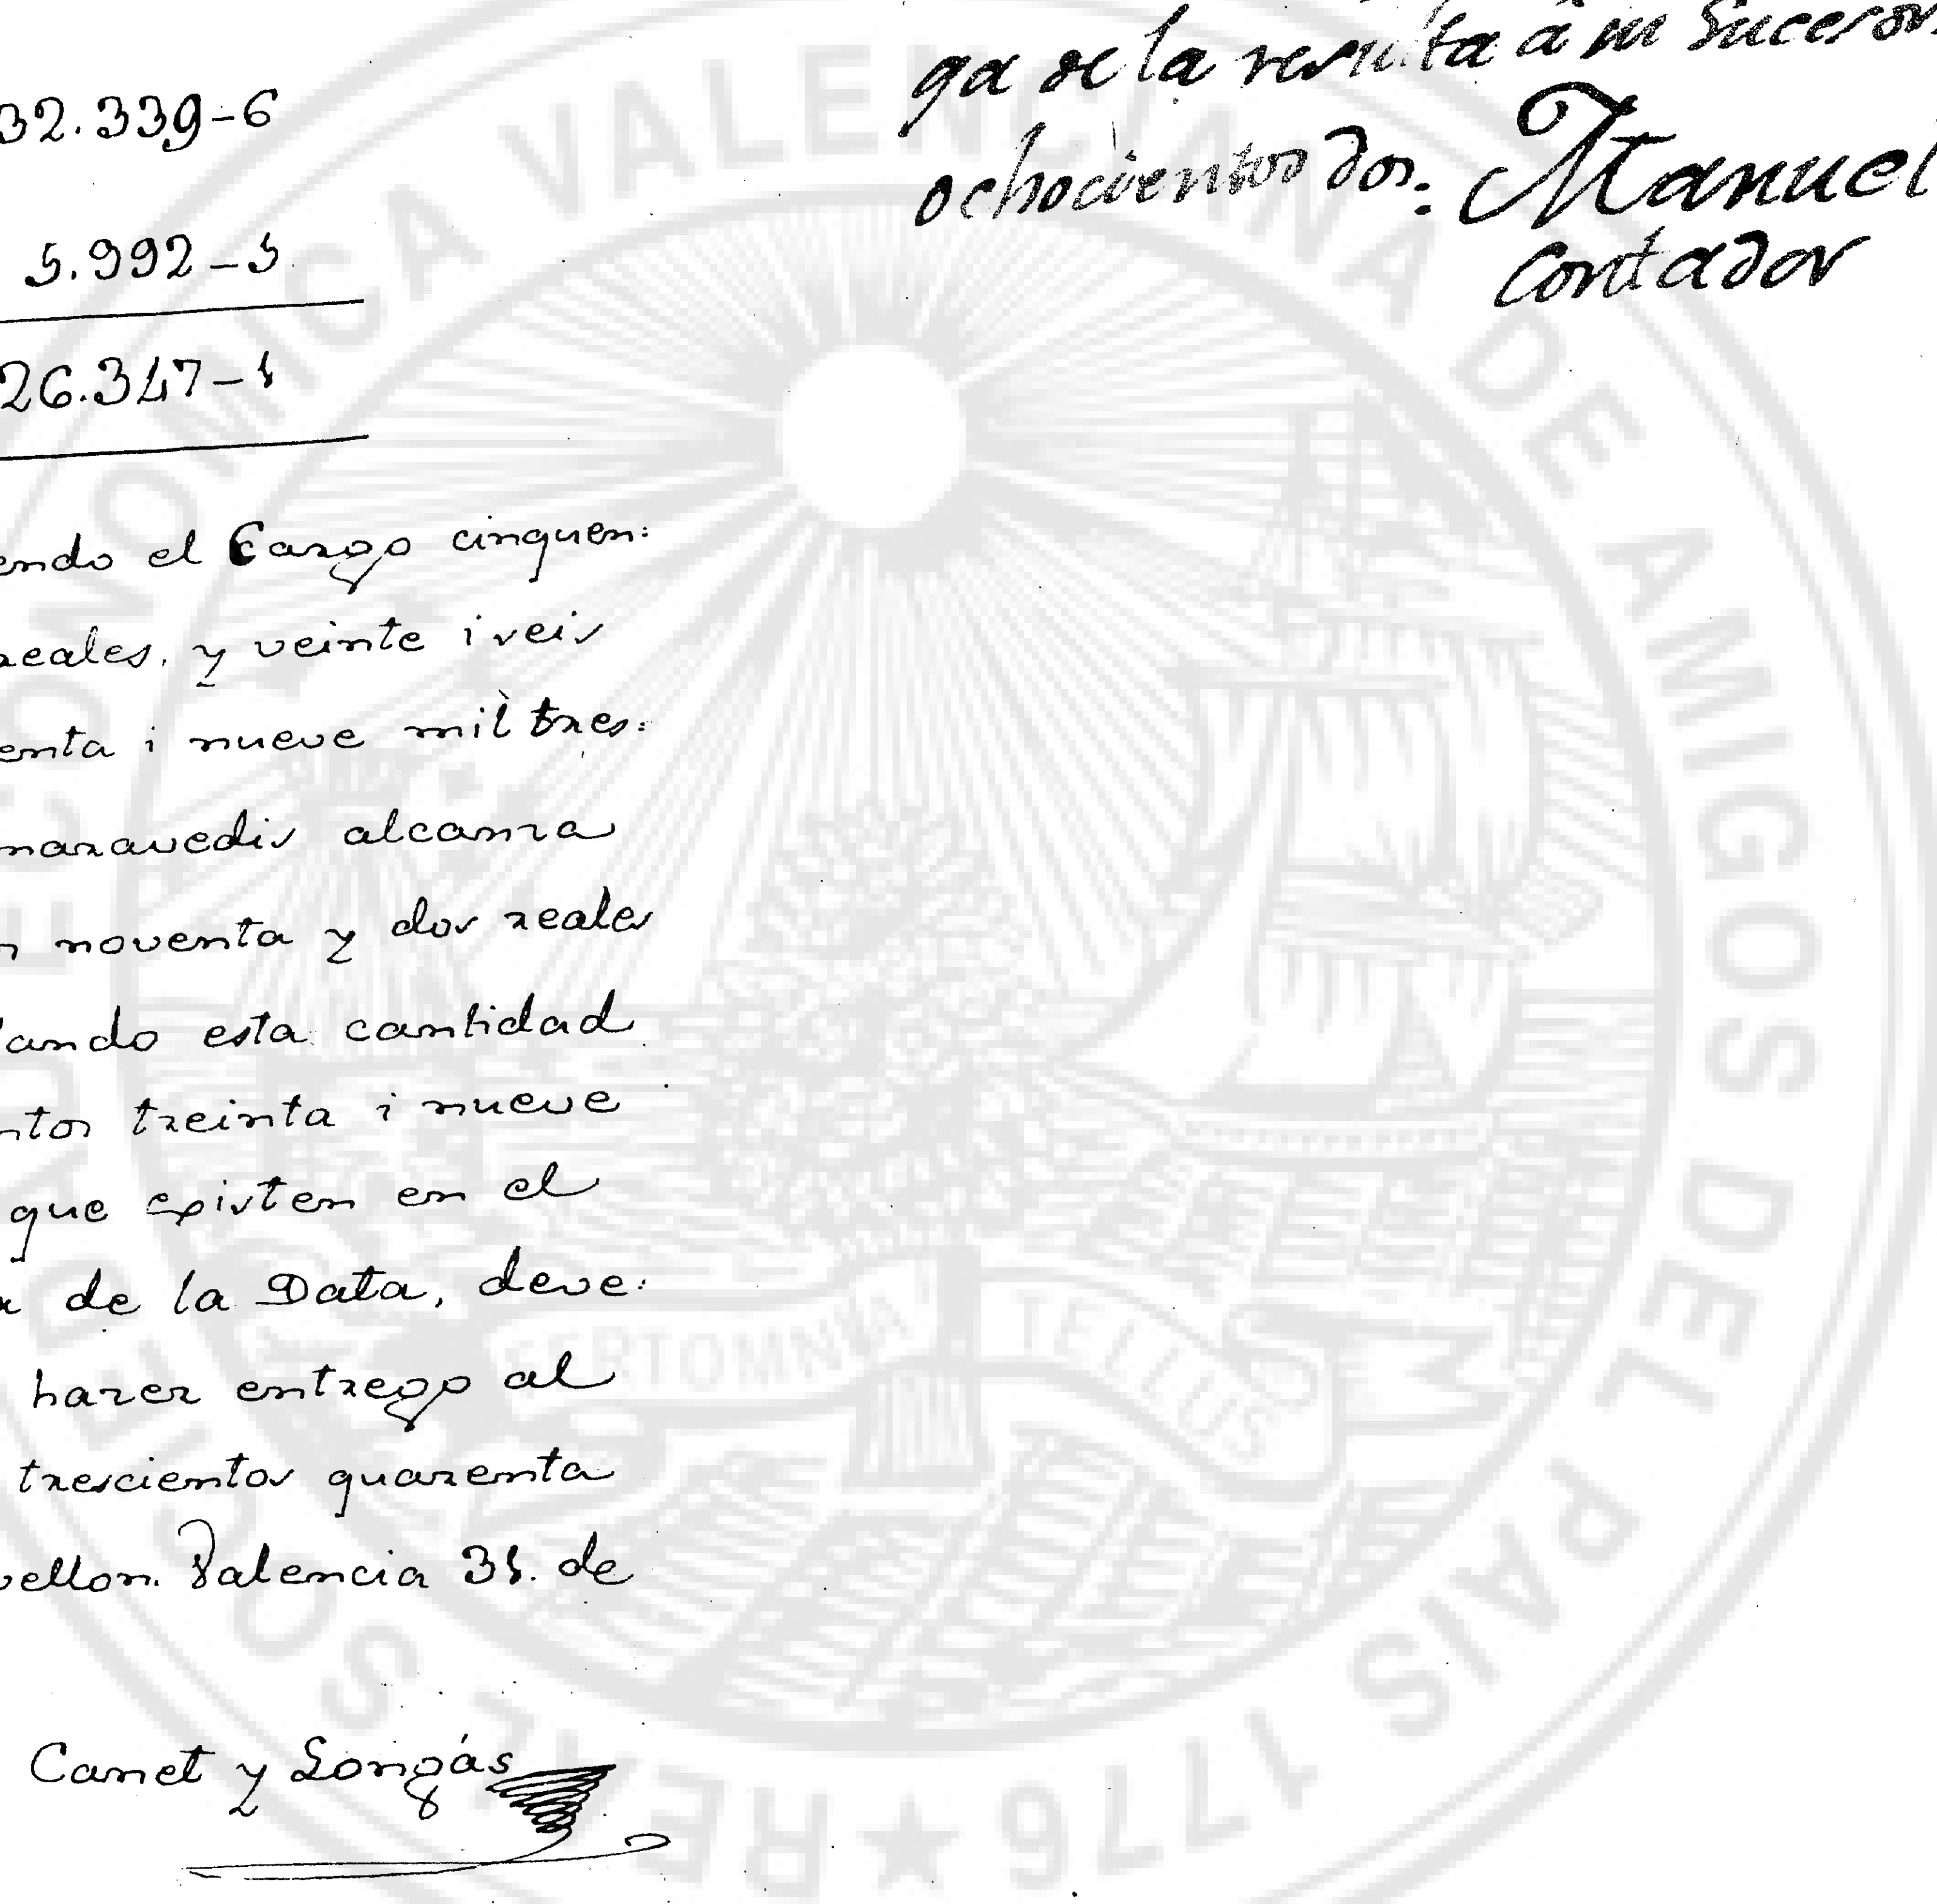 32.339-6
5.992-5
26.347-1
endo el Cargo cinquen:
reales, y veinte i seis
enta i nueve mil tres:
maravedis alcanza
n noventa y dos reales
ando esta cantidad
ntos treinta i nueve
que existen en el
de la Data, deve:
hazer entrego al
trescientos quarenta
vellon. Valencia 31. de
Canet y Longás
ga de la resulta â mi Sucesor
ochocientos dos. Manuel
Contador
REAL SOCIEDAD ECONOMICA VALENCIANA DE AMIGOS DEL PAIS 1776
SERTOMNIA TELLUS